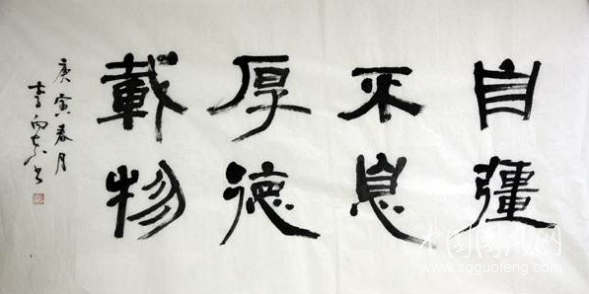 自彊
不息
厚德
載物
庚寅春月
中国国风网
www.zgguofeng.com